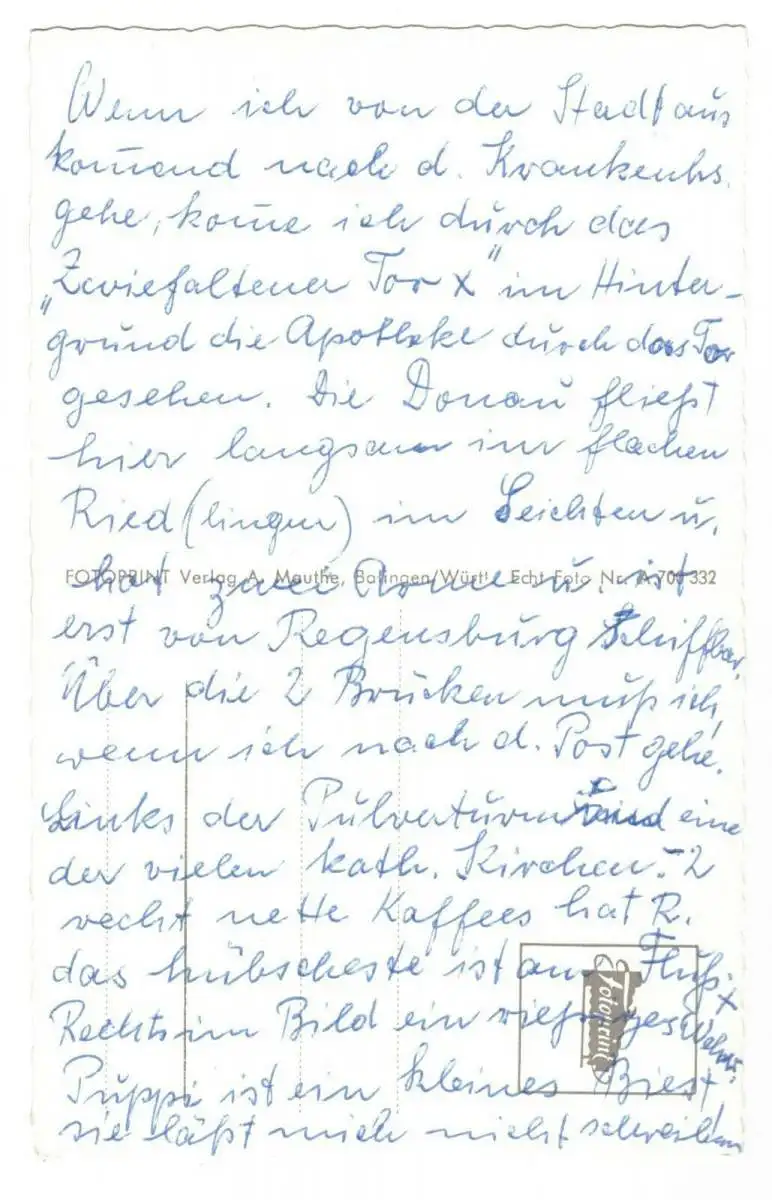 Wenn ich von der Stadt aus
kom̄end nach d. Krankenhs.
gehe, kom̄e ich durch das
„Zwiefaltener Tor x" im Hinter-
grund die Apotheke durch das Tor
gesehen. Die Donau fließt
hier langsam im flachen
Ried (lingen) im Seichten u.
FOTOPRINT Verlag A. Mauthe, Balingen/Württ. Echt Foto Nr. A 705 332
hat zwei Arme u. ist
erst von Regensburg schiffbar.
Über die 2 Brücken muß ich,
wenn ich nach d. Post gehe.
Links der Pulverturm eine
der vielen kath. Kirchen. - 2
recht nette Kaffees hat R.
das hübscheste ist am Fluß. x
Rechts im Bild ein riesiges
Fotoprint
Puppi ist ein kleines Biest,
sie läßt mich nicht schreiben